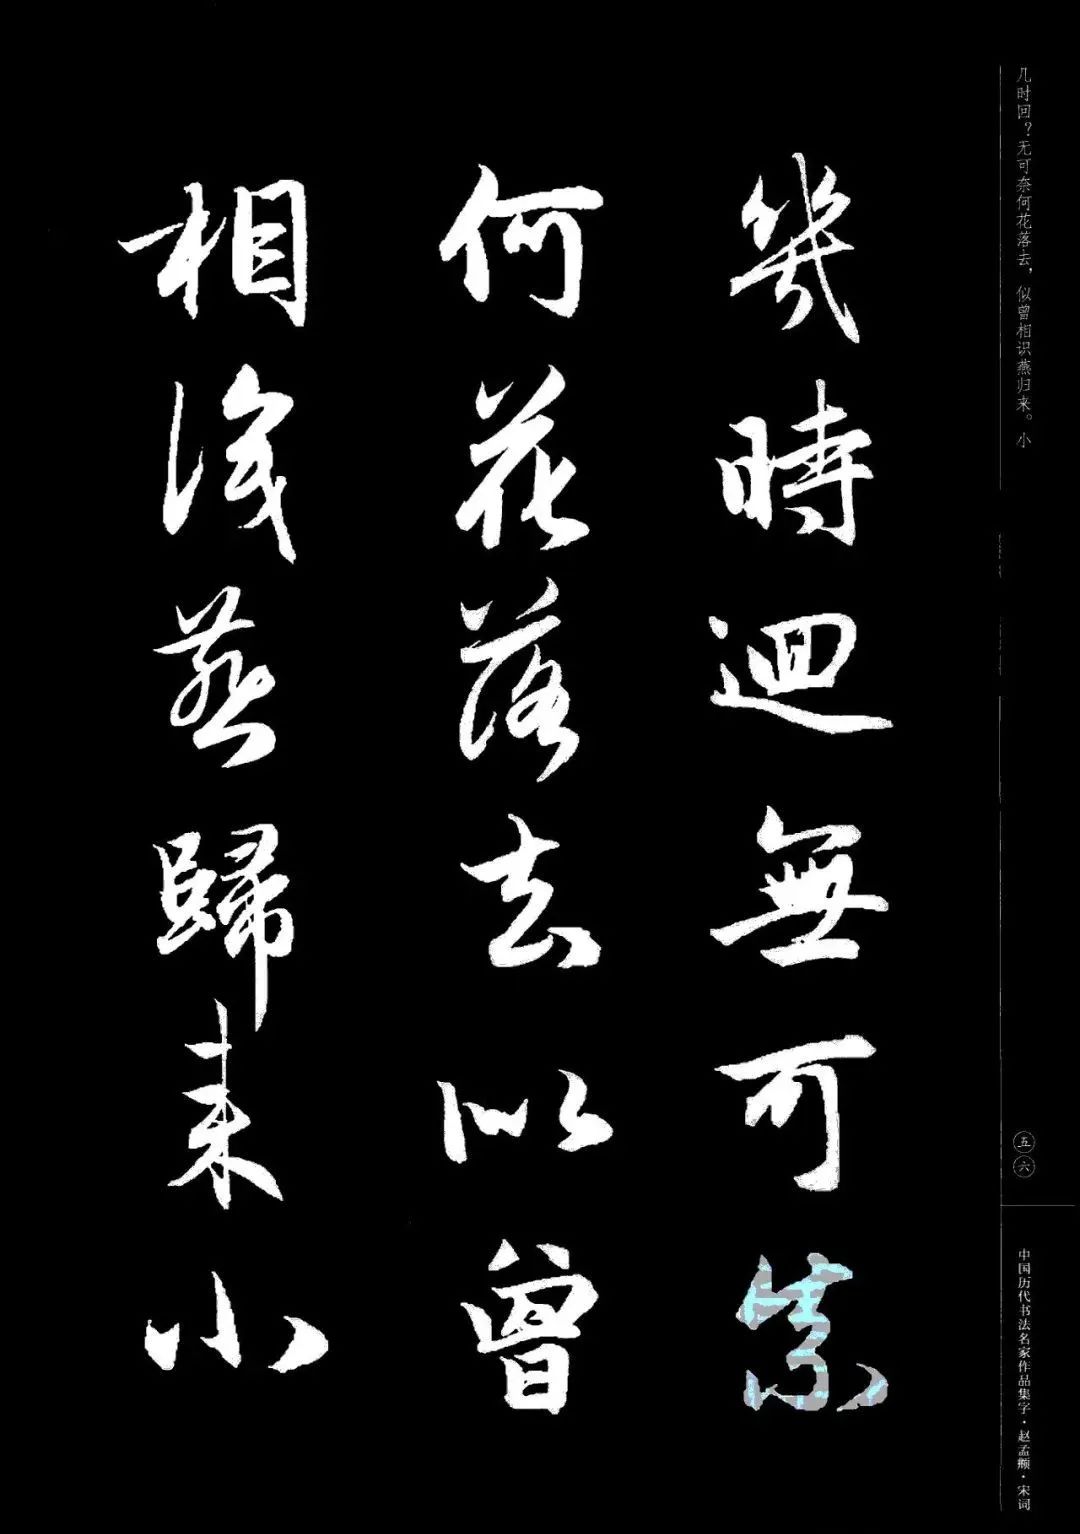 几时回？无可奈何花落去，似曾相识燕归来。小
五六
中国历代书法名家作品集字·赵孟頫·宋词
幾時迴無可
何花落去似曾
相識燕歸来小